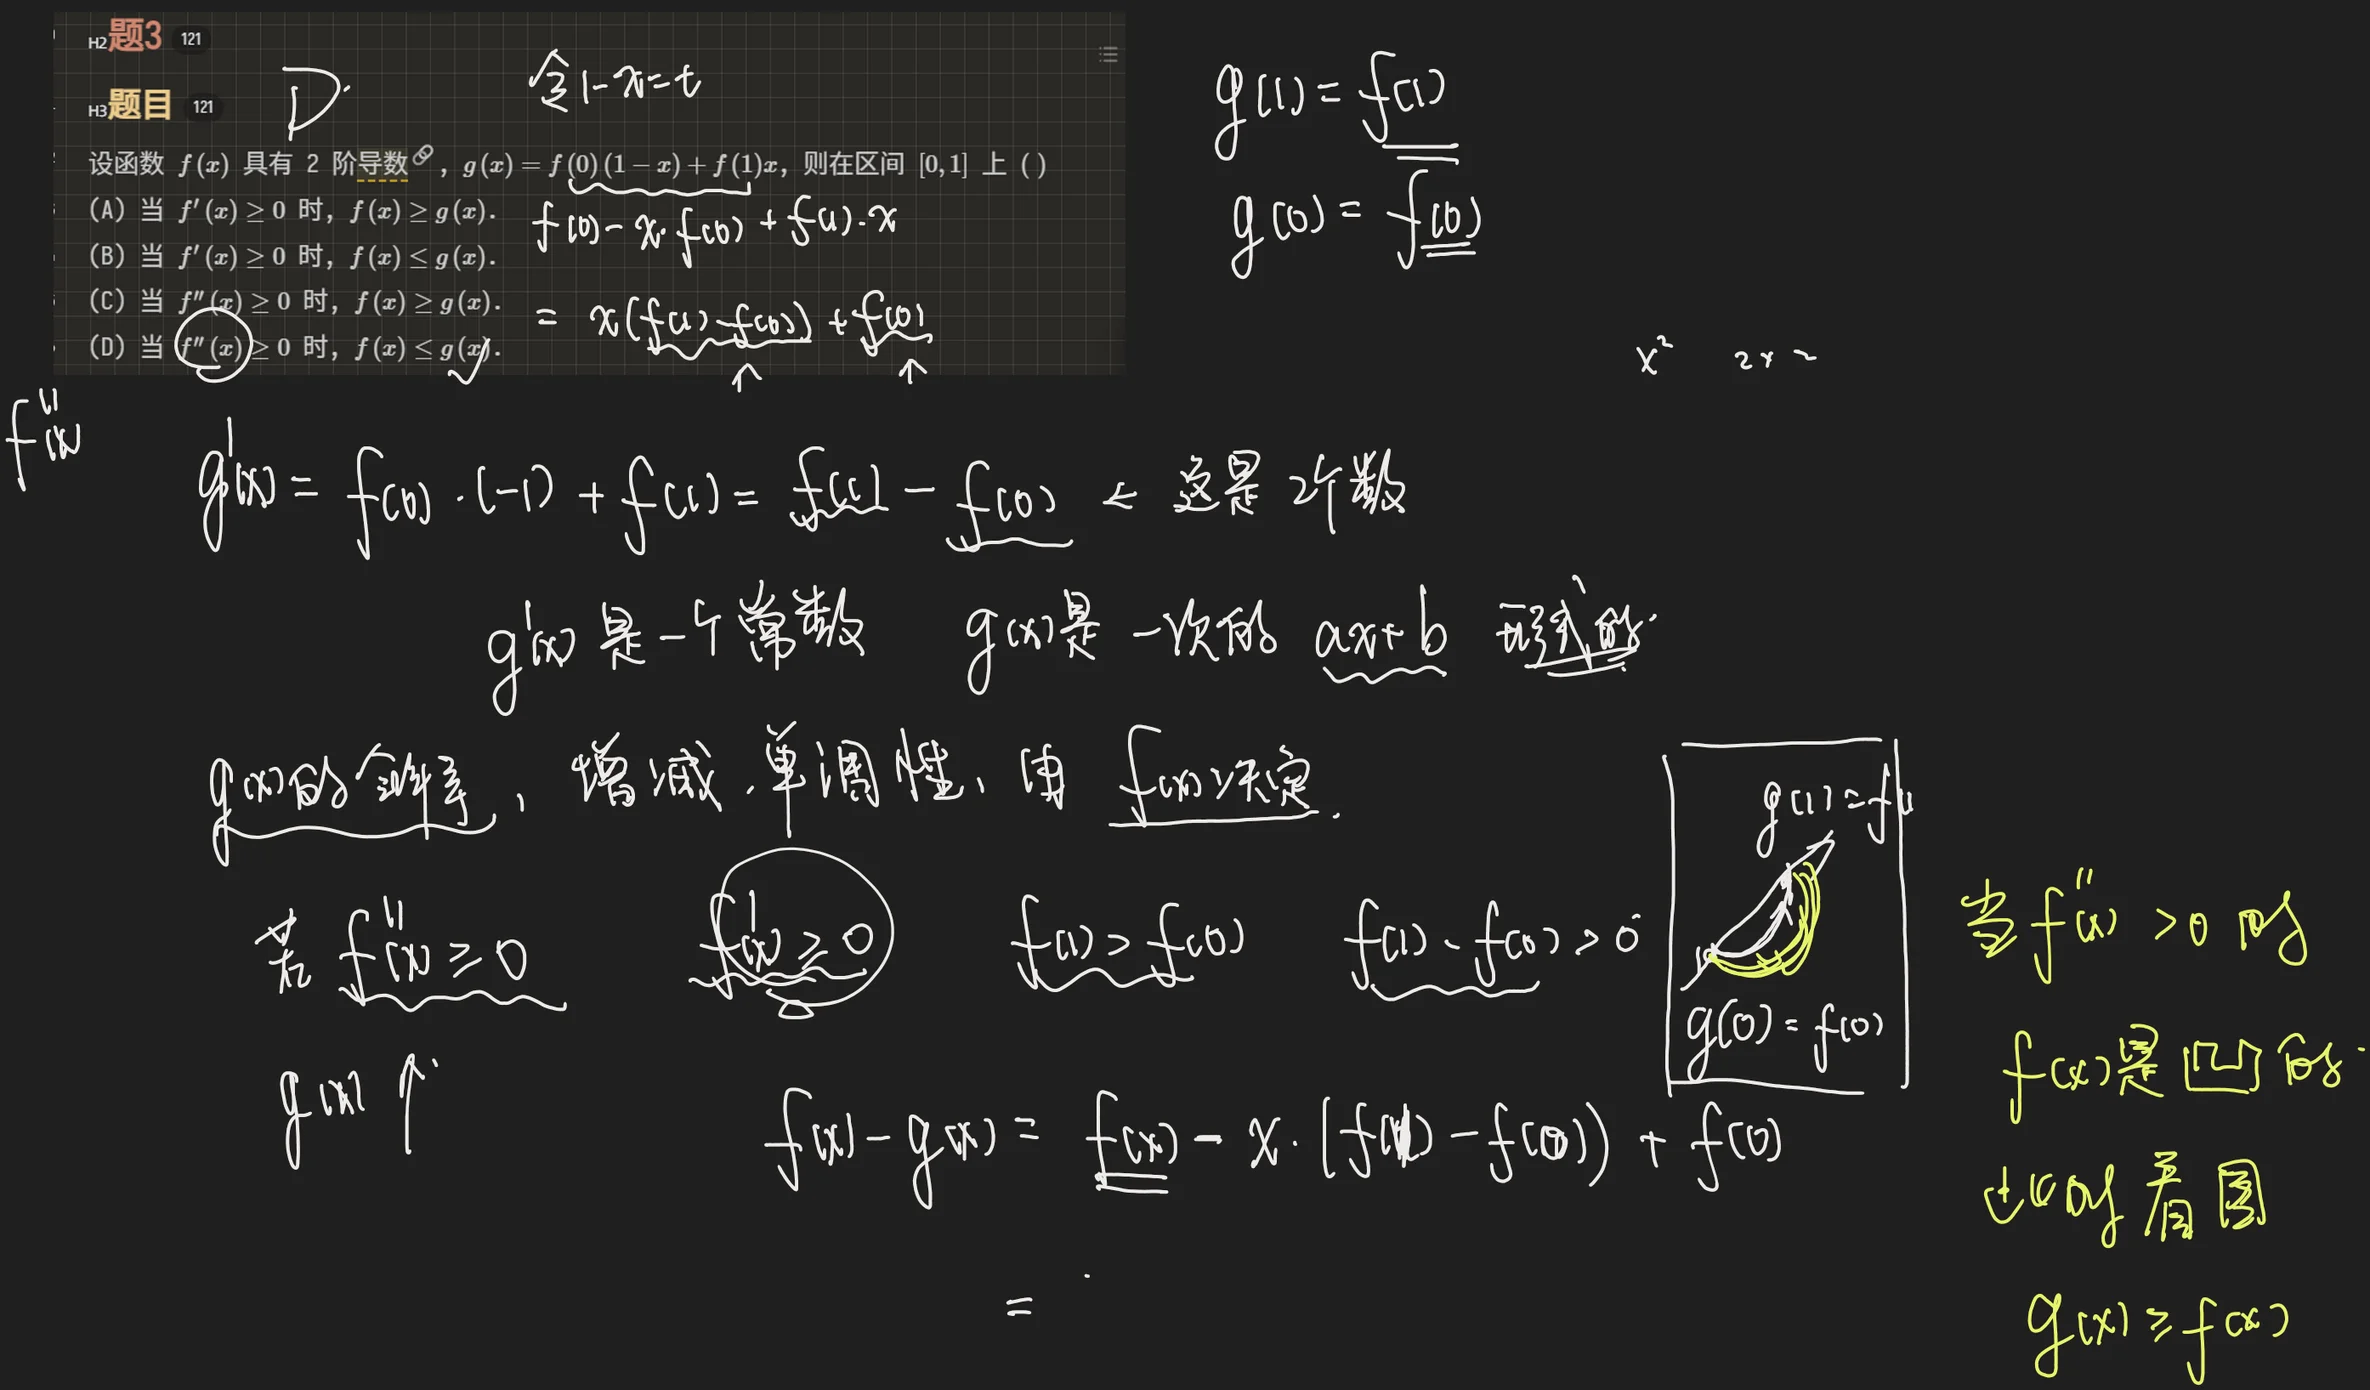 H2题3 121
H3题目 121
D
令1-x=t
设函数 f(x) 具有 2 阶导数, g(x)=f(0)(1-x)+f(1)x, 则在区间 [0,1] 上 ( )
(A) 当 f′(x)≥0 时, f(x)≥g(x).
(B) 当 f′(x)≥0 时, f(x)≤g(x).
(C) 当 f″(x)≥0 时, f(x)≥g(x).
(D) 当 f″(x)≥0 时, f(x)≤g(x).
f(0)-x·f(0)+f(1)·x
= x(f(1)-f(0))+f(0)
g(1)=f(1)
g(0)=f(0)
x² 2x 2
f″(x)
g′(x)=f(0)·(-1)+f(1)=f(1)-f(0) ← 这是2个数
g′(x)是一个常数 g(x)是一次的 ax+b 形式的.
g(x)的斜率, 增减.单调性、由 f(x)决定.
若 f″(x)≥0 f′(x)≥0 f(1)>f(0) f(1)-f(0)>0
g(x)↑
g(1)=f(1
g(0)=f(0)
f(x)-g(x)=f(x)-x·(f(1)-f(0))+f(0)
=
当f″(x)>0时
f(x)是凹的.
此时看图
g(x)≥f(x)